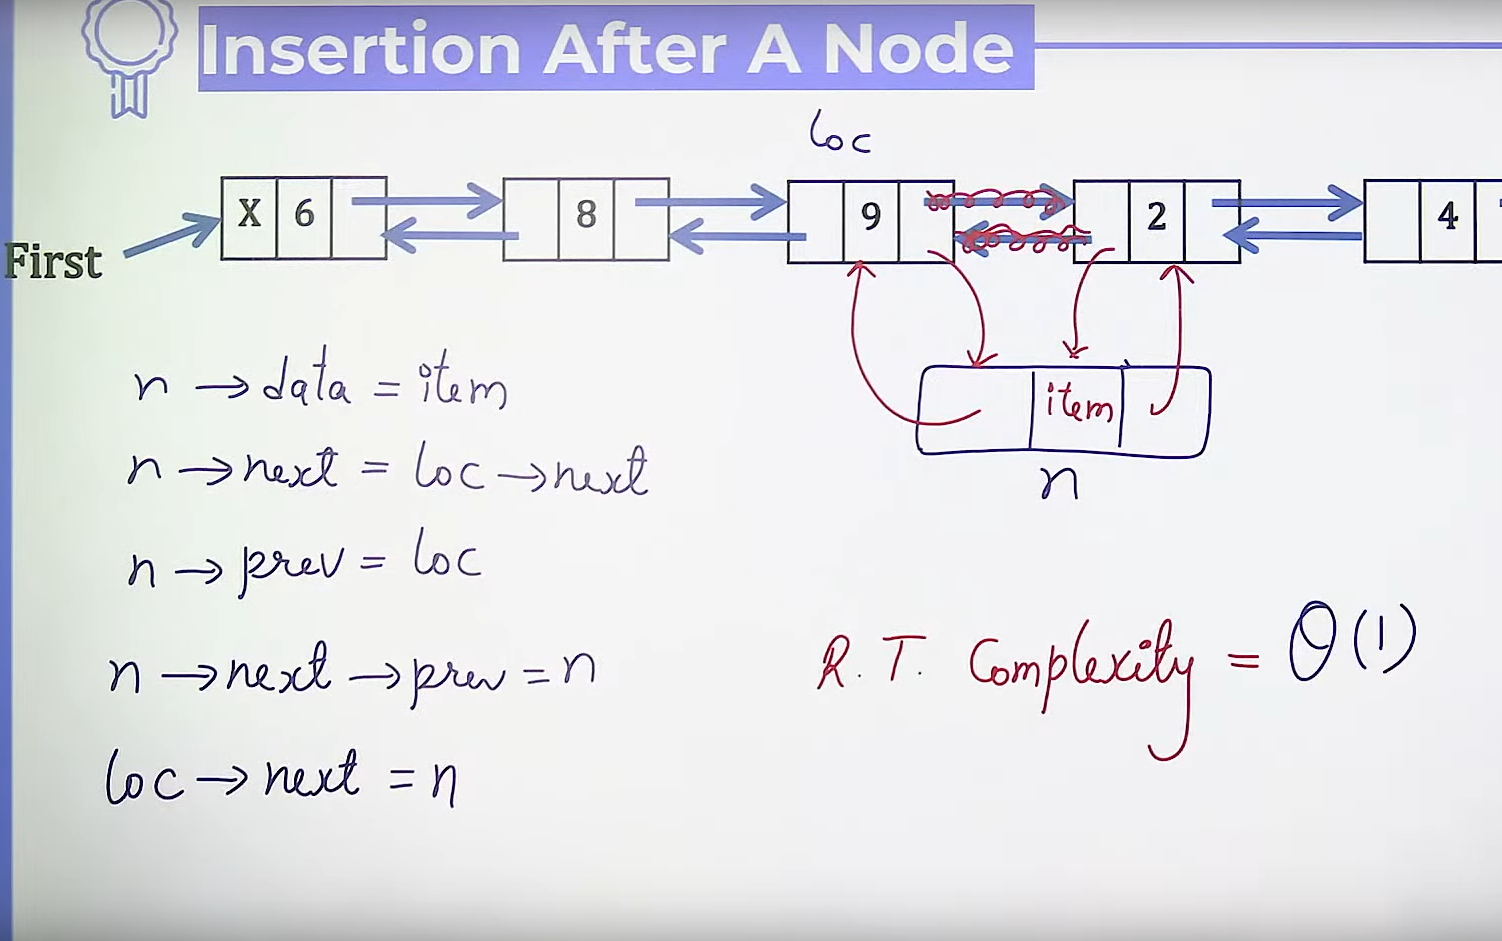 Insertion After A Node
loc
X 6 8 9 2 4
First
item
n
n → data = item
n → next = loc → next
n → prev = loc
n → next → prev = n
loc → next = n
R.T. Complexity = θ(1)